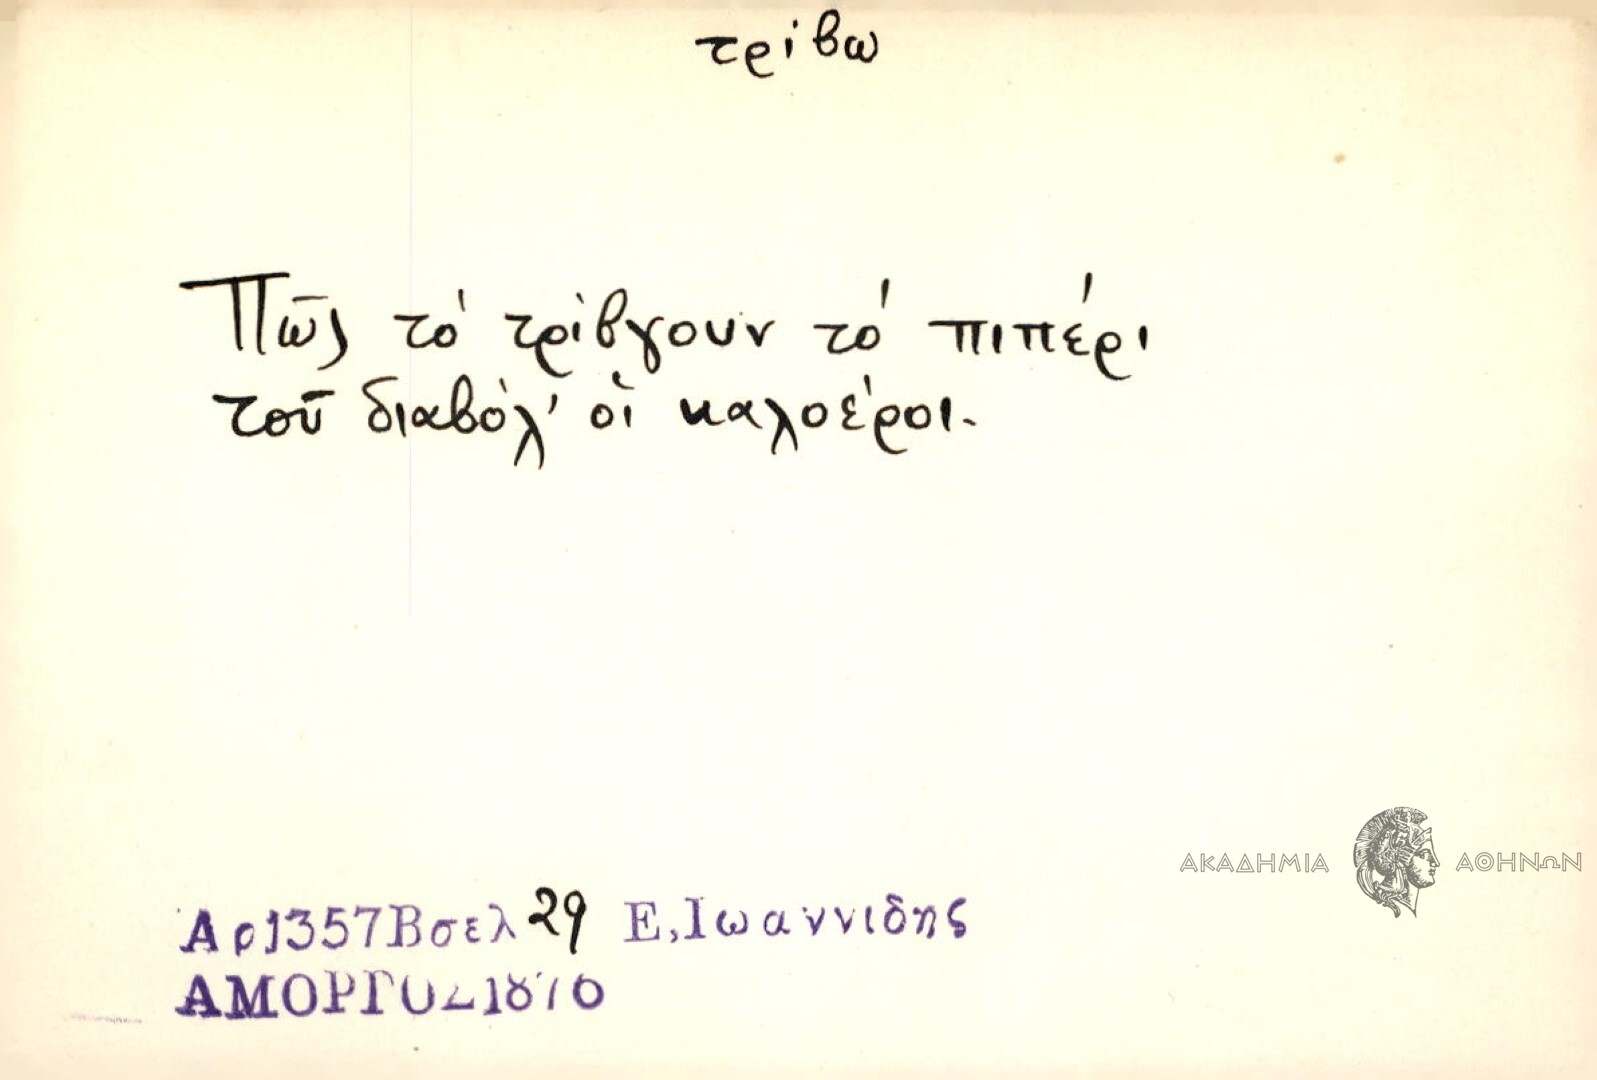 τρίβω
Πῶς τό τρίβγουν τό πιπέρι
τοῦ διαβόλ' οἱ καλοέροι.
ΑΚΑΔΗΜΙΑ ΑΘΗΝΩΝ
Αρ1357Βσελ 29 Ε,Ιωαννιδης
ΑΜΟΡΓΟΣ1876